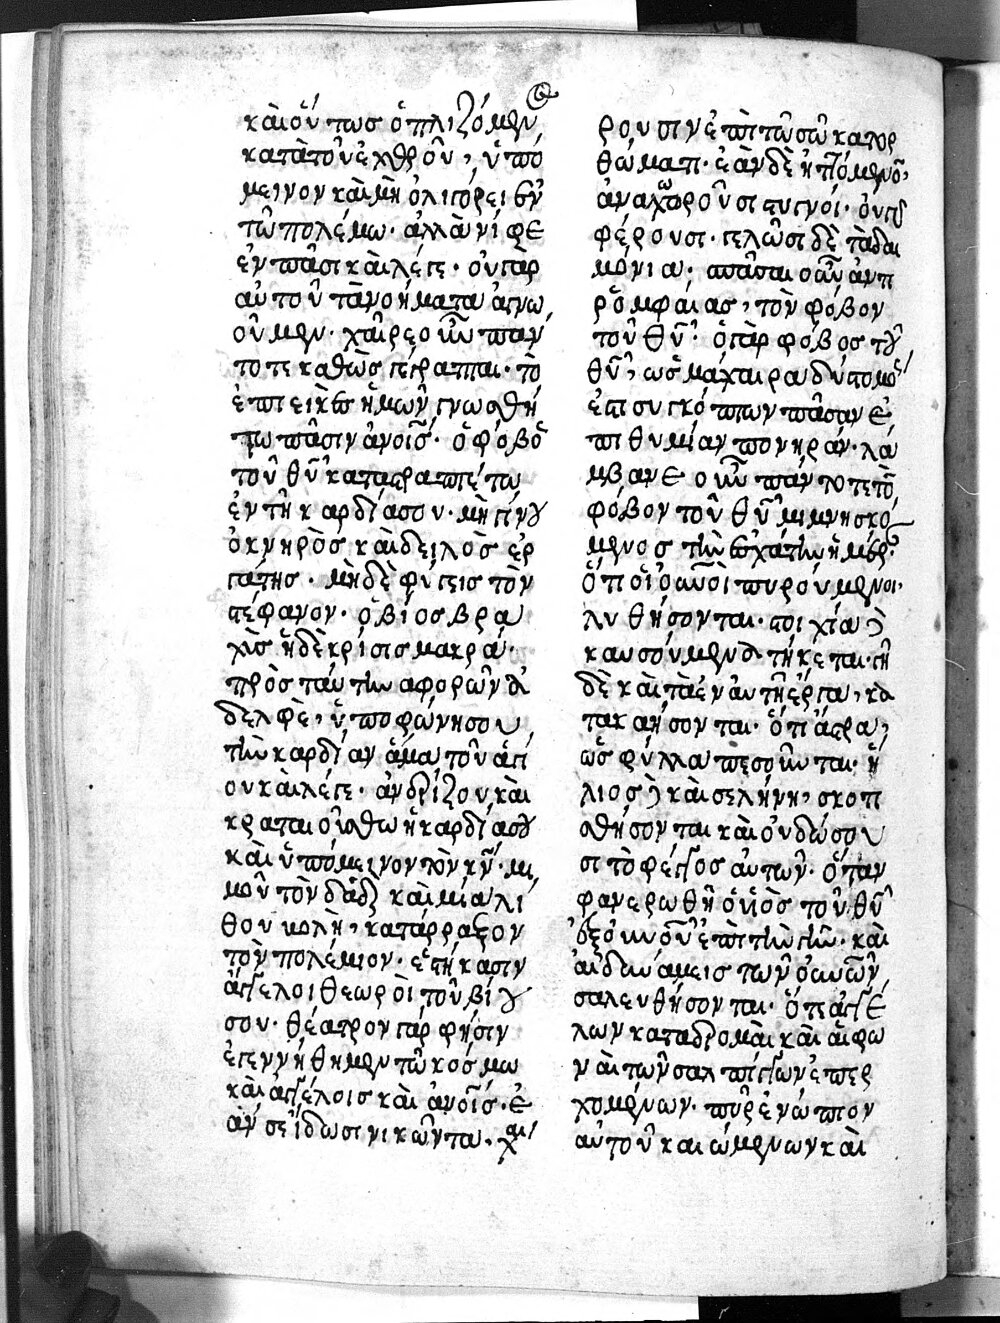 καὶ ὄντως ὁπλιζόμεν
κατὰ τὸν ἐχθρὸν, ὑπό
μεινον καὶ μὴ ὀλιγόρει ἐν
τῶ πολέμω· ἀλλὰ νίφε
ἐν πᾶσι καὶ λέγε· οὐ γὰρ
αὐτοῦ τὰ νοήματα ἀγνω
οῦμεν· χαῖρε οὖν πάν
τοτε καθὼς γέγραπται· τὸ
ἐπιεικὲς ἡμῶν γνωσθή
τω πᾶσιν ἀνοις· ὁ φόβος
τοῦ θῦ καταστραπτέτω
ἐν τῆ καρδία σου· μὴ γίνου
ὀκνηρὸς καὶ δειλὸς ἐρ
γάτης· μὴ δὲ φύγεις τὸν
στέφανον· ὁ βίος βρα
χὺς ἡ δὲ κρίσις μακρά·
πρὸς ταύτην ἀφορῶν ἀ
δελφὲ, ὑποφώνησον
τὴν καρδίαν ἅμα τοῦ ἁγί
ου καὶ λέγε· ἀνδρίζου καὶ
κραταιούσθω ἡ καρδία σου
καὶ ὑπόμεινον τὸν κν· μι
μοῦ τὸν δαδ καὶ μία λί
θου βολὴ, κατάρραξον
τὸν πολέμιον· ἑστήκασιν
ἄγγελοι θεωροὶ τοῦ βίου
σου· θέατρον γάρ φησιν
ἐγεννήθημεν τῶ κόσμω
καὶ ἀγγέλοις καὶ ἀνοις· ἐ
άν σε ἴδωσι νικῶντα, χαί
ρουσιν ἐπὶ τῶ σῶ κατορ
θώματι· ἐὰν δὲ ἡττόμενον,
ἀναχωροῦσι στυγνοί· οὐ γὰρ
φέρουσι· γελῶσι δὲ τὰ δαι
μόνια· σπᾶσαι οὖν ἀντι
ρομφαίας, τὸν φόβον
τοῦ θῦ· ὁ γὰρ φόβος τοῦ
θῦ, ὡς μάχαιρα δίστομος
ἐστι συγκόπτων πᾶσαν ἐ
πιθυμίαν πονηράν· λά
μβανε οὖν πάντοτε τὸν
φόβον τοῦ θῦ μιμνησκό
μενος τὴν ἐσχάτην ἡμέραν·
ὅτι οἱ οὐνοὶ πυρούμενοι·
λυθήσονται· στοιχία δὲ
καυσούμενα τήκεται· γῆ
δὲ καὶ τὰ ἐν αὐτῆ ἔργα, κα
τακαήσονται· ὅτι ἄστρα,
ὡς φύλλα πεσοῦνται· ἥ
λιος δὲ καὶ σελήνη, σκοτι
σθήσονται καὶ οὐ δώσου
σι τὸ φέγγος αὐτῶν· ὅταν
φανερωθῆ ὁ υἱὸς τοῦ θῦ
ἐξ οὐνοῦ ἐπὶ τὴν γῆν· καὶ
αἱ δυνάμεις τῶν οὐνῶν,
σαλευθήσονται· ὅτι ἀγγέ
λων καταδρομαὶ καὶ αἱ φω
ναὶ τῶν σαλπίγγων ἐπερ
χομένων· πῦρ ἐνώπιον
αὐτοῦ καιώμενων καὶ